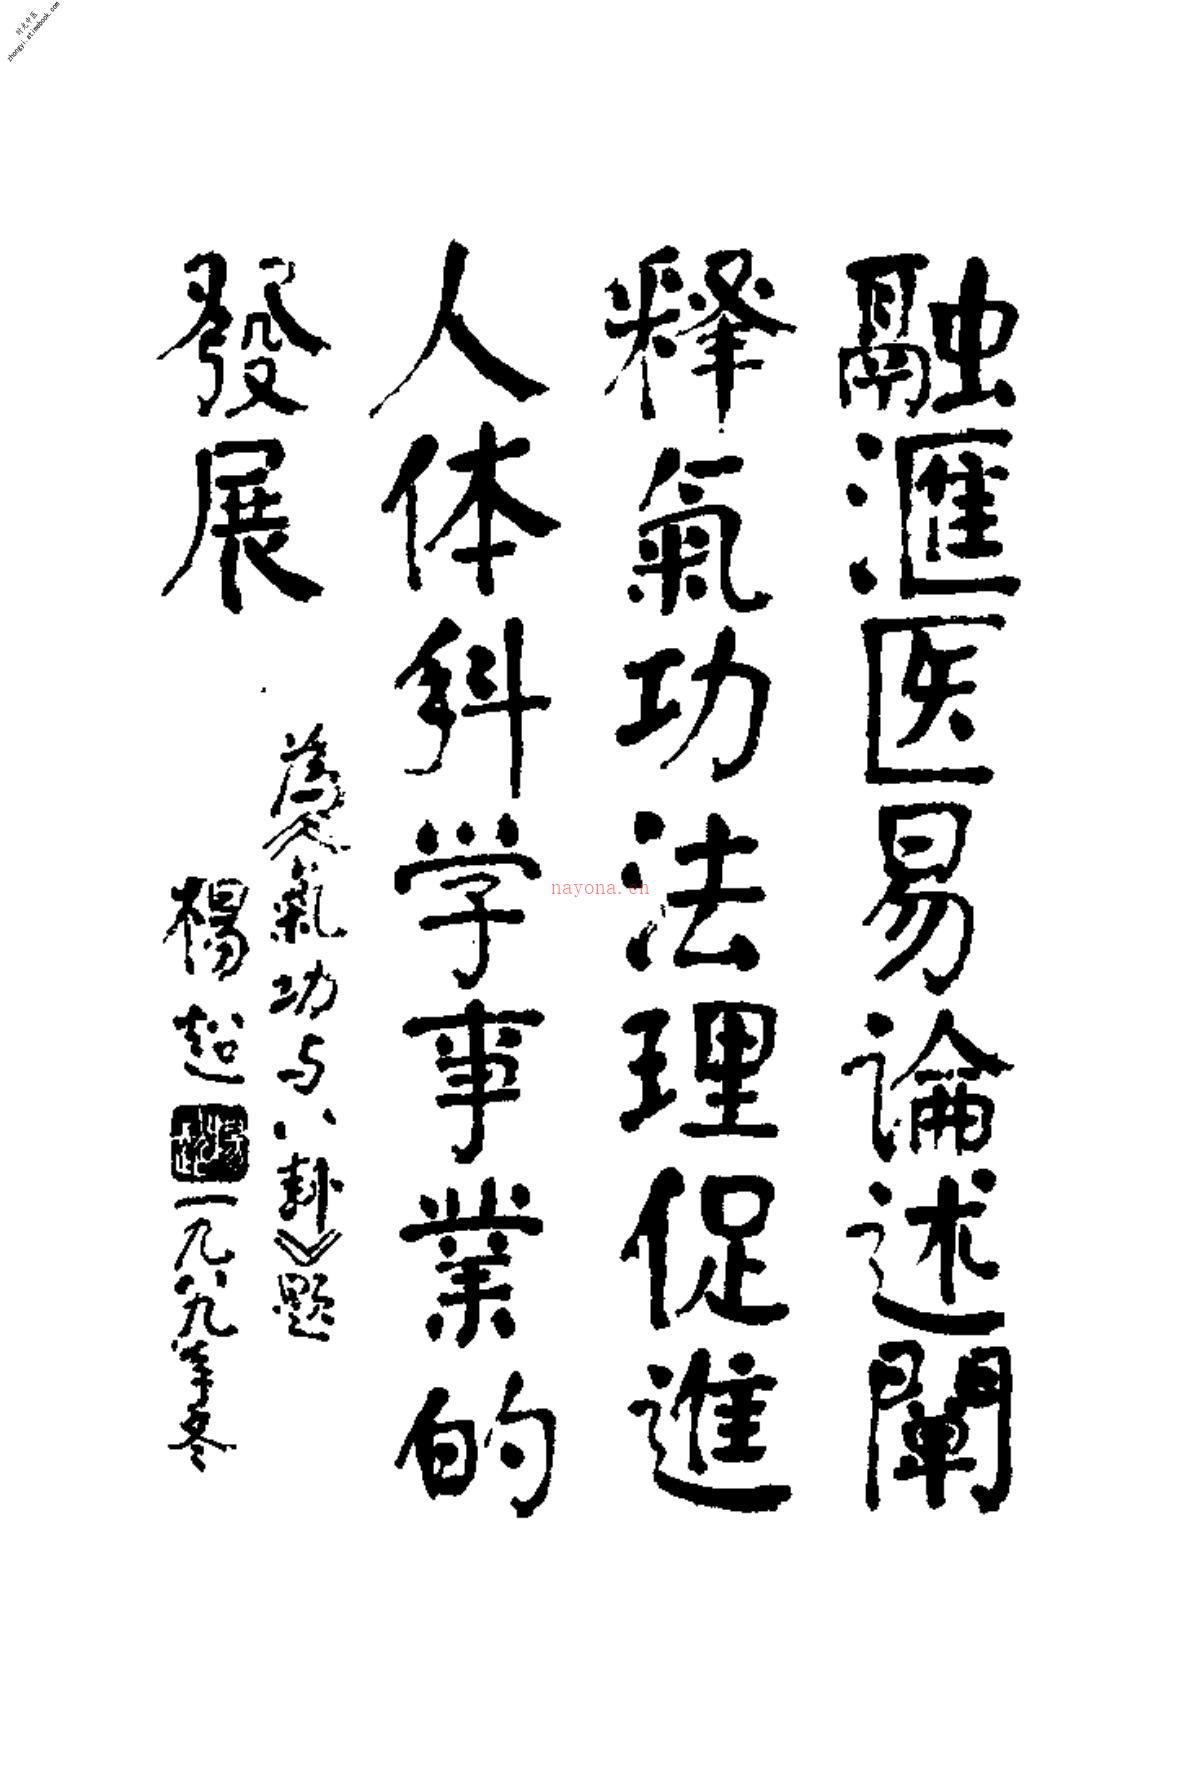 融滙医易論述闡
释氣功法理促進
人体科学事業的
發展
為《氣功与八卦》題
楊超
一九八九年冬
时光中医
zhongyi.atimebook.com
nayona.cn